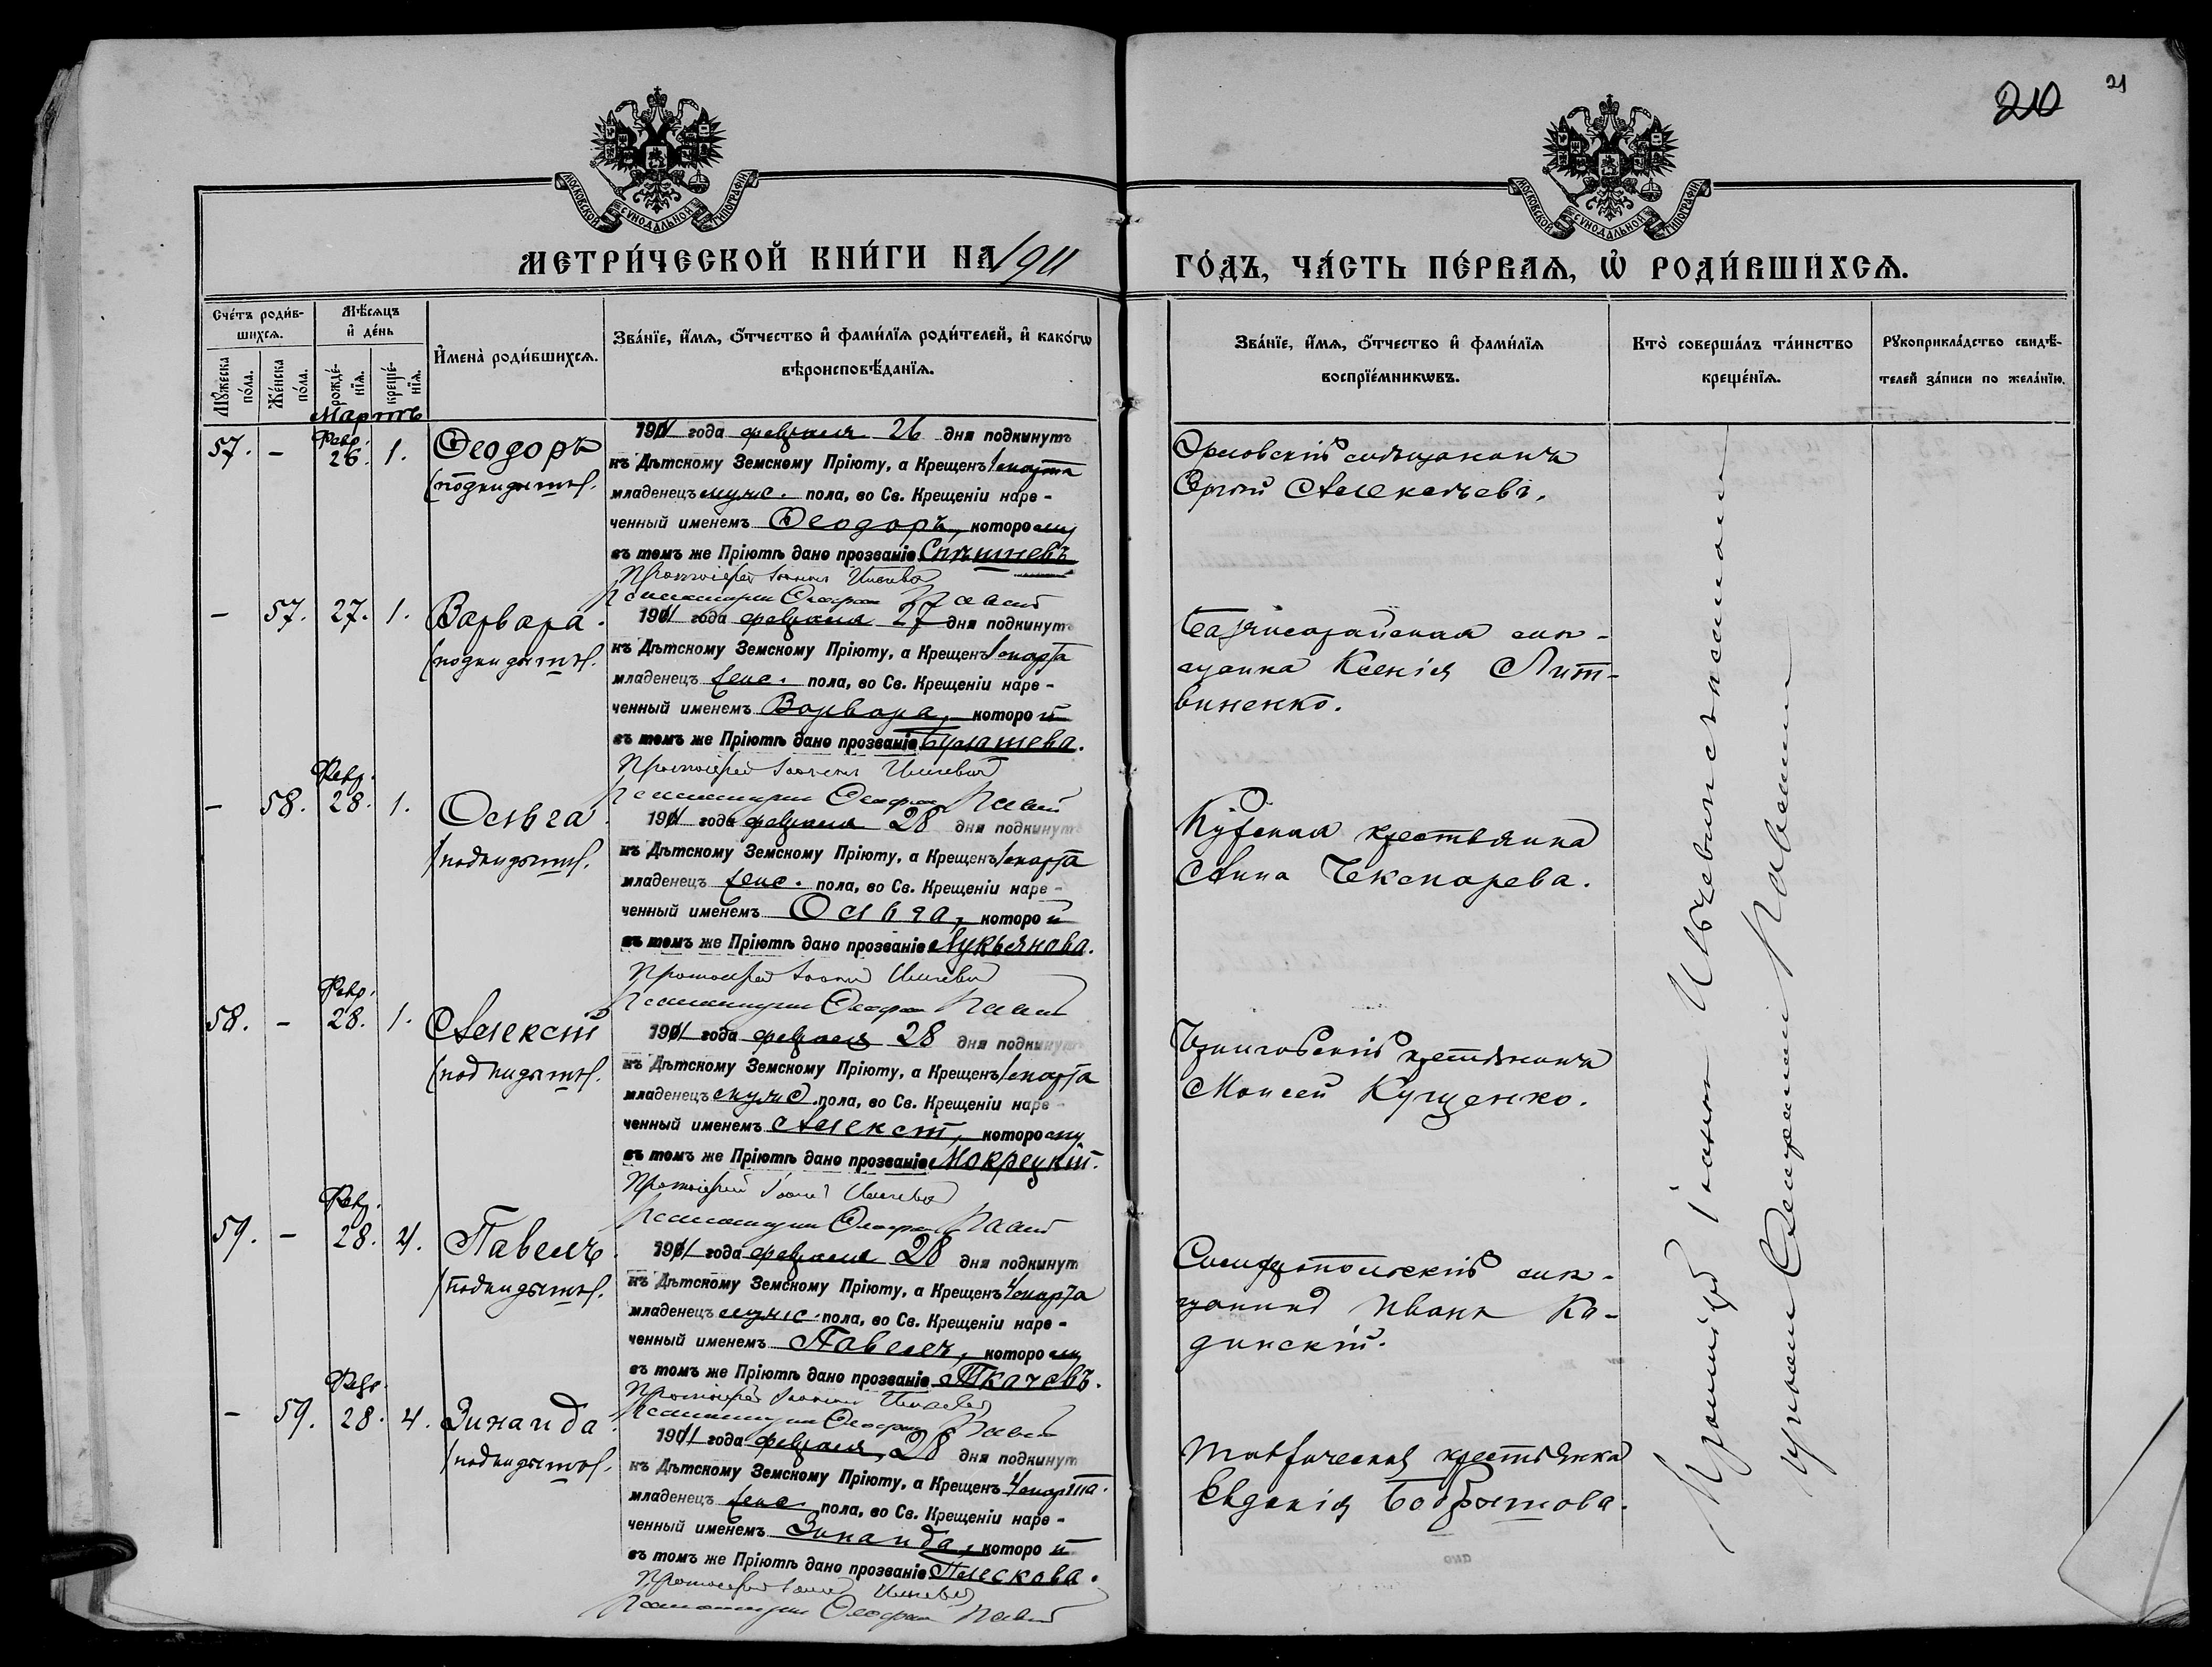 210
21
МОСКОВСКОЙ СѴНОДАЛЬНОЙ ТИПОГРАФІИ
МОСКОВСКОЙ СѴНОДАЛЬНОЙ ТИПОГРАФІИ
МЕТРИ́ЧЕСКОЙ КНИ́ГИ НА 1911
ГО́ДЪ, ЧА́СТЬ ПЕ́РВАѦ, Ѡ҆ РОДИ́ВШИХСѦ.
Сче́тъ роди́в-
шихсѧ.
Мѣ́сѧцъ
и҆ де́нь
Мꙋ́жеска по́ла.
Же́нска по́ла.
рожде́-нїѧ.
креще́-нїѧ.
И҆мена̀ роди́вшихсѧ.
Зва́нїе, и҆́мѧ, ѻ҆́тчество и҆ фами́лїѧ роди́телей, и҆ како́гѡ
вѣроисповѣ́данїѧ.
Зва́нїе, и҆́мѧ, ѻ҆́тчество и҆ фами́лїѧ
воспрїе́мникѡвъ.
Кто̀ соверша́лъ та́инство
креще́нїѧ.
Рꙋкоприкла́дство свидѣ́-
телей за́писи по жела́нїю.
Мартъ
57. - Февр. 26. 1. Ѳеодоръ
(подкидышъ).
1911 года февраля 26 дня подкинутъ
къ Дѣтскому Земскому Пріюту, а Крещенъ 1 марта
младенецъ муж. пола, во Св. Крещеніи наре-
ченный именемъ Ѳеодоръ, которому
въ томъ же Пріютѣ дано прозваніе
Протоіерей Іоаннъ
Орловскій мѣщанинъ
Сергѣй Алексѣевъ.
- 57. 27. 1. Варвара.
(подкидышъ).
1911 года февраля 27 дня подкинутъ
къ Дѣтскому Земскому Пріюту, а Крещенъ 1 марта
младенецъ жен. пола, во Св. Крещеніи наре-
ченный именемъ Варвара, которой
въ томъ же Пріютѣ дано прозваніе Булашева.
Протоіерей Іоаннъ
Бахчисарайская мѣ-
щанка Ксенія Лит-
виненко.
- 58. Февр. 28. 1. Ольга.
(подкидышъ).
1911 года февраля 28 дня подкинутъ
къ Дѣтскому Земскому Пріюту, а Крещенъ 1 марта
младенецъ жен. пола, во Св. Крещеніи наре-
ченный именемъ Ольга, которой
въ томъ же Пріютѣ дано прозваніе Лукьянова.
Протоіерей Іоаннъ
Курская крестьянка
Анна Чекмарева.
58. - Февр. 28. 1. Алексій
(подкидышъ).
1911 года февраля 28 дня подкинутъ
къ Дѣтскому Земскому Пріюту, а Крещенъ 1 марта
младенецъ муж. пола, во Св. Крещеніи наре-
ченный именемъ Алексій, которому
въ томъ же Пріютѣ дано прозваніе Мокрецкій.
Протоіерей Іоаннъ
Черниговскій крестьянинъ
Моисей Кущенко.
59. - Февр. 28. 4. Павелъ.
(подкидышъ).
1911 года февраля 28 дня подкинутъ
къ Дѣтскому Земскому Пріюту, а Крещенъ 4 марта
младенецъ муж. пола, во Св. Крещеніи наре-
ченный именемъ Павелъ, которому
въ томъ же Пріютѣ дано прозваніе Ткачевъ.
Протоіерей Іоаннъ
Симферопольскій мѣ-
щанинъ Иванъ Ка-
динскій.
- 59. Февр. 28. 4. Зинаида.
(подкидышъ).
1911 года февраля 28 дня подкинутъ
къ Дѣтскому Земскому Пріюту, а Крещенъ 4 марта.
младенецъ жен. пола, во Св. Крещеніи наре-
ченный именемъ Зинаида, которой
въ томъ же Пріютѣ дано прозваніе Плескова.
Протоіерей Іоаннъ
Таврическая крестьянка
Евдокія
Протоіерей Іоаннъ